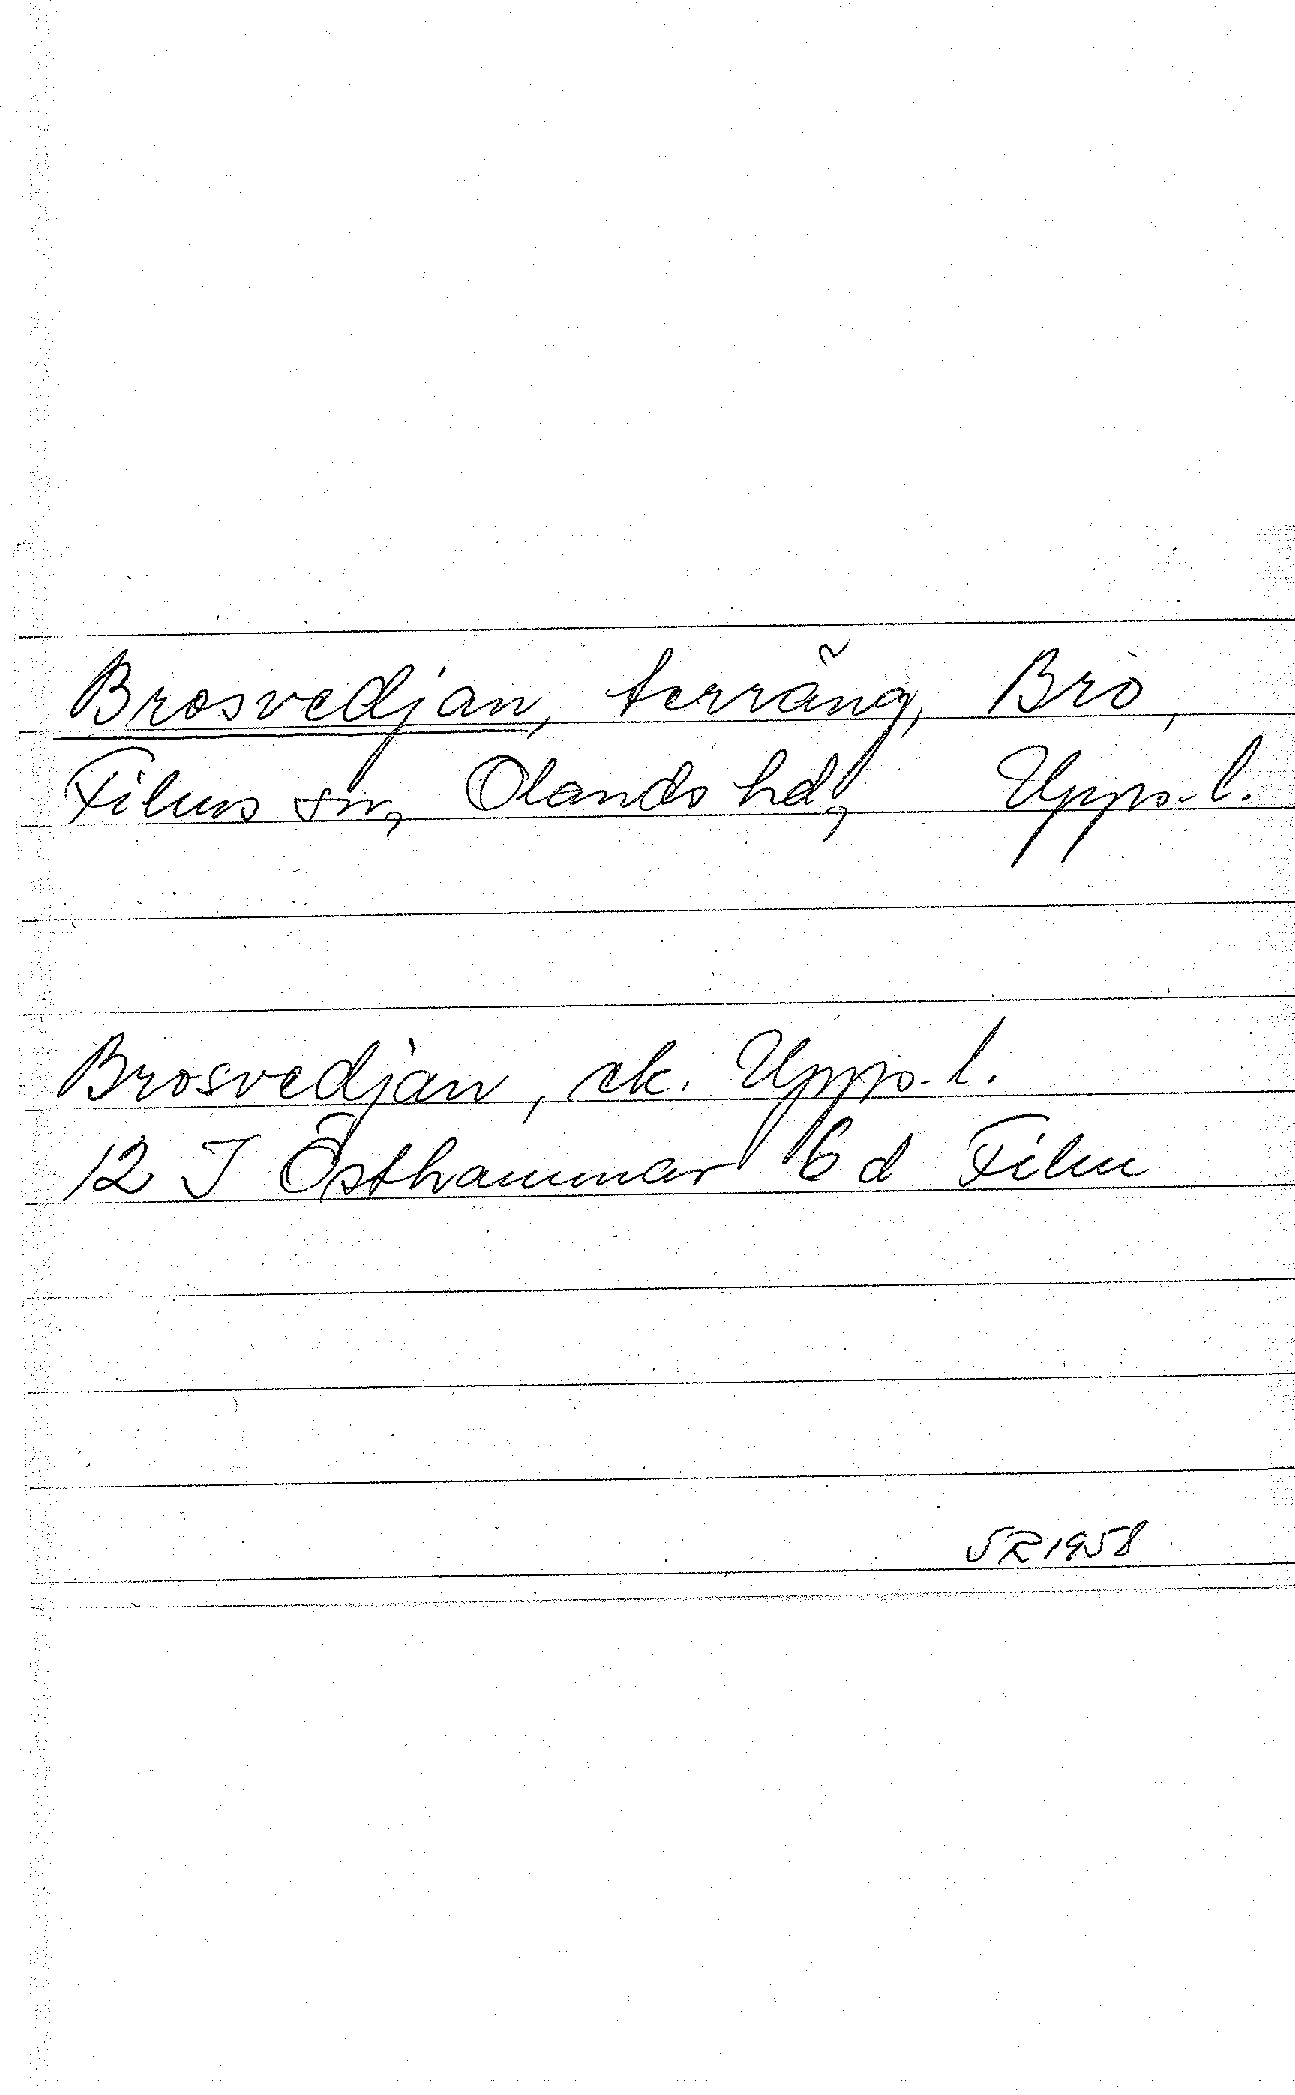 Brosvedjan, terräng, Bro,
Films sn, Olands hd, Upps. l.
Brosvedjan, ek. Upps. l.
12 I Östhammar 6 d Film
SR 1958